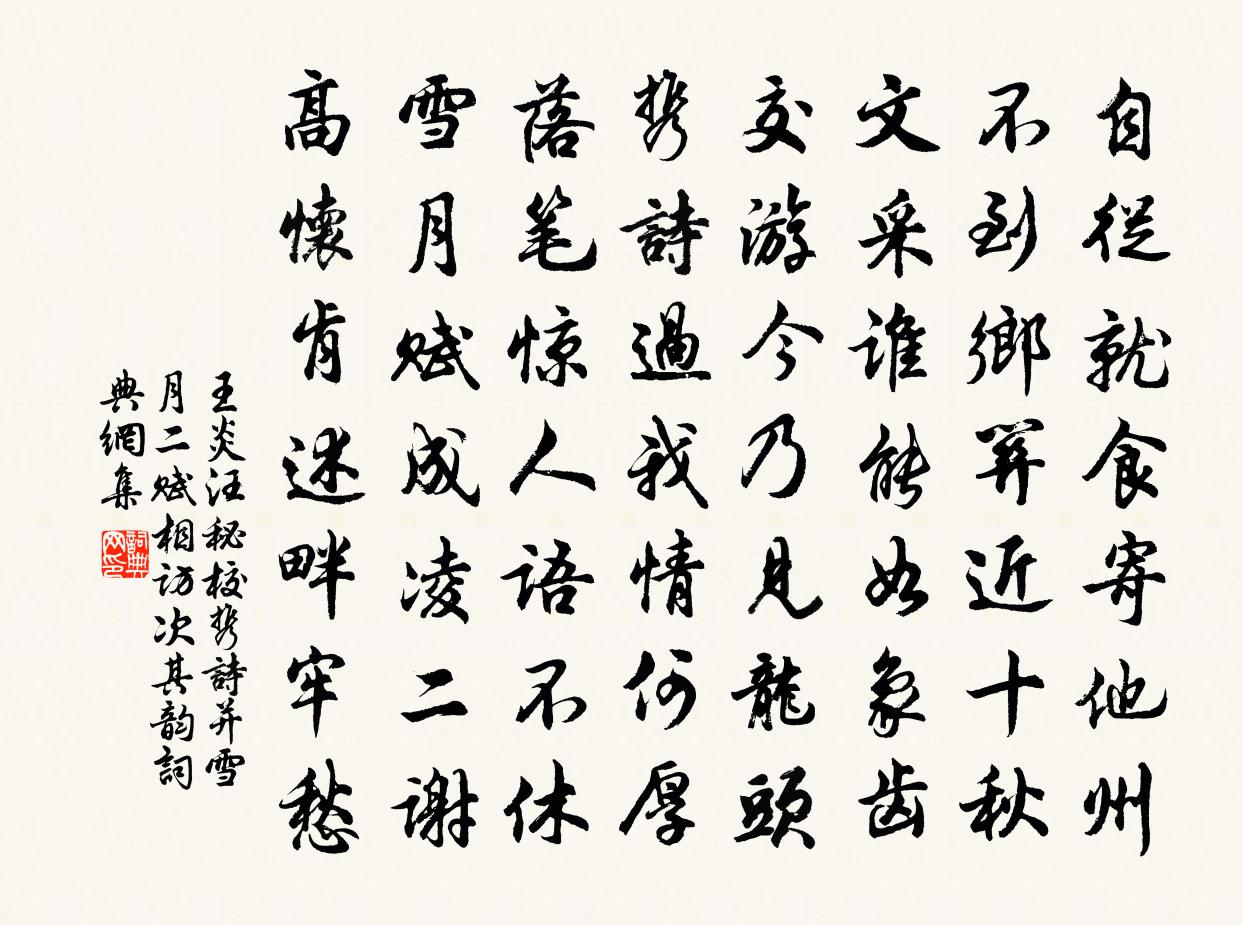 自從就食寄他州
不到鄉關近十秋
文采誰能如象齿
交游今乃見龍頭
携詩過我情何厚
落笔惊人語不休
雪月赋成凌二謝
高懷肯述畔牢愁
王炎汪秘校携詩并雪
月二赋相訪次其韵詞
典網集
詞典网印